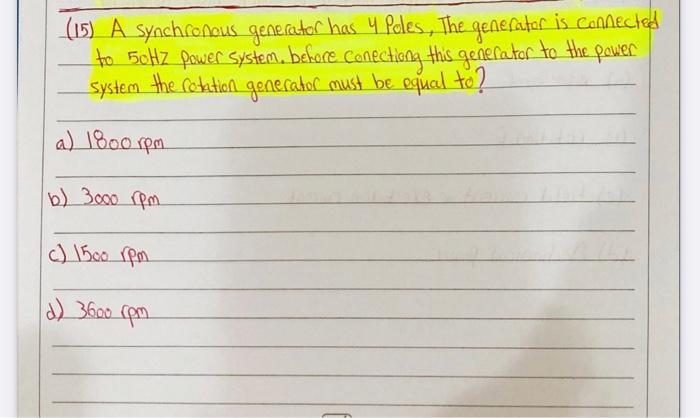 (15) A synchronous generator has 4 Poles, The generator is connected
to 50HZ power system, before conectiong this generator to the power
system the rotation generator must be equal to?
a) 1800 rpm
b) 3000 rpm
c) 1500 rpm
d) 3600 rpm